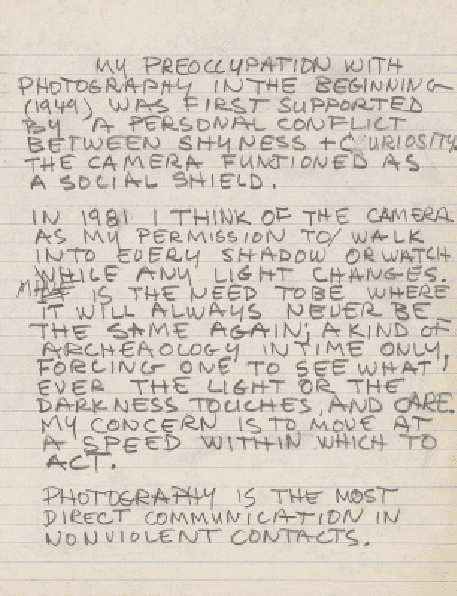 MY PREOCCUPATION WITH
PHOTOGRAPHY IN THE BEGINNING
(1949) WAS FIRST SUPPORTED
BY A PERSONAL CONFLICT
BETWEEN SHYNESS + CURIOSITY
THE CAMERA FUNTIONED AS
A SOCIAL SHIELD.
IN 1981 I THINK OF THE CAMERA
AS MY PERMISSION TO/ WALK
INTO EVERY SHADOW OR WATCH
WHILE ANY LIGHT CHANGES.
MINE IS THE NEED TO BE WHERE
IT WILL ALWAYS NEVER BE
THE SAME AGAIN; A KIND OF
ARCHEAOLOGY IN TIME ONLY,
FORCING ONE TO SEE WHAT
EVER THE LIGHT OR THE
DARKNESS TOUCHES, AND CARE.
MY CONCERN IS TO MOVE AT
A SPEED WITHIN WHICH TO
ACT.
PHOTOGRAPHY IS THE MOST
DIRECT COMMUNICATION IN
NONVIOLENT CONTACTS.